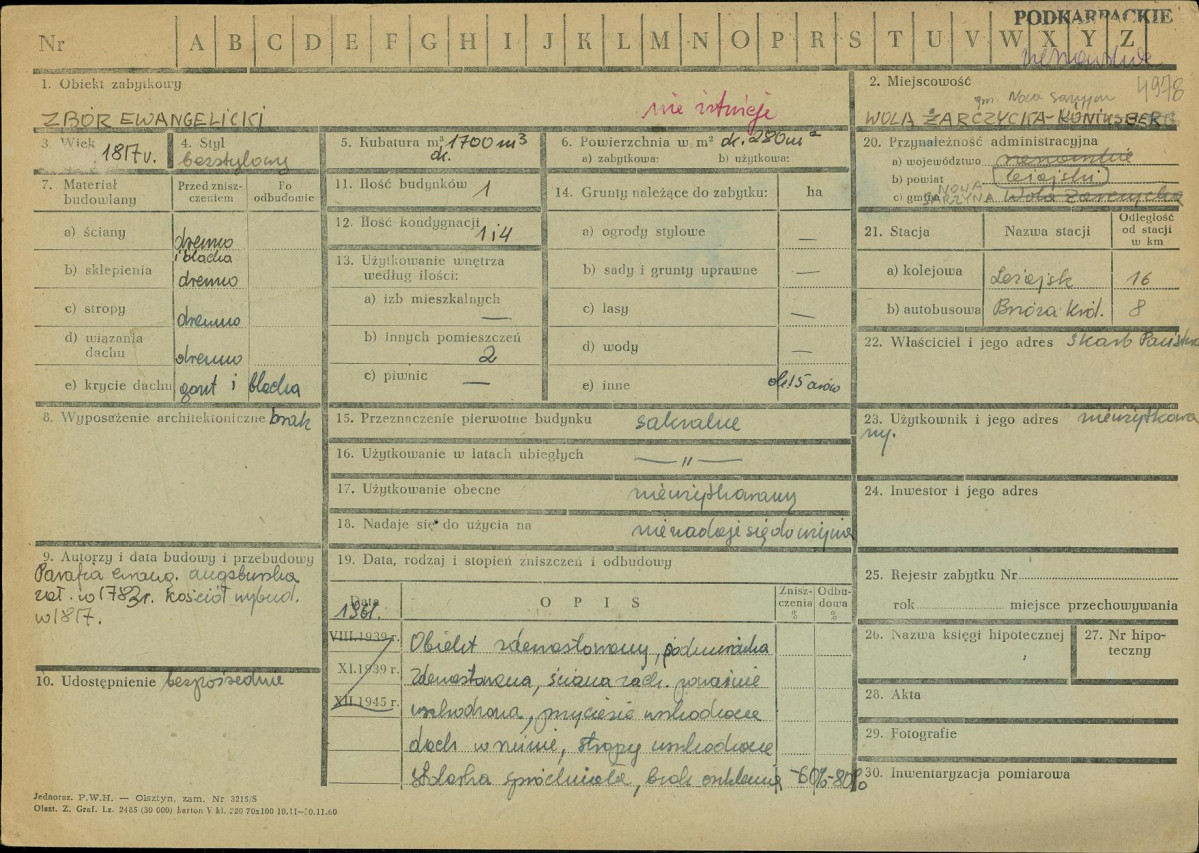 PODKARPACKIE
Nr A B C D E F G H I J K L M N O P R S T U V W X Y Z
1. Obiekt zabytkowy
ZBÓR EWANGELICKI
nie istnieje
2. Miejscowość
4978
gm. Nowa Sarzyna
WOLA ŻARCZYCKA-KÖNIGSBERG
3. Wiek 1817 r.
4. Styl
bezstylowy
5. Kubatura m³ 1700 m³
ok.
6. Powierzchnia w m² ok. 280m²
a) zabytkowa: b) użytkowa:
20. Przynależność administracyjna
a) województwo rzeszowskie
b) powiat leżajski
c) gmina NOWA SARZYNA Wola Żarczycka
7. Materiał budowlany
Przed zniszczeniem
Po odbudowie
a) ściany drewno i blacha
b) sklepienia drewno
c) stropy drewno
d) wiązania dachu drewno
e) krycie dachu gont i blacha
11. Ilość budynków 1
12. Ilość kondygnacji 1 i 4
13. Użytkowanie wnętrza według ilości:
a) izb mieszkalnych —
b) innych pomieszczeń 2
c) piwnic —
14. Grunty należące do zabytku: ha
a) ogrody stylowe —
b) sady i grunty uprawne —
c) lasy —
d) wody —
e) inne ok. 15 arów
21. Stacja Nazwa stacji Odległość od stacji w km
a) kolejowa Leżajsk 16
b) autobusowa Brzóza Król. 8
22. Właściciel i jego adres Skarb Państwa
8. Wyposażenie architektoniczne brak
15. Przeznaczenie pierwotne budynku sakralne
16. Użytkowanie w latach ubiegłych — " —
17. Użytkowanie obecne nieużytkowany
18. Nadaje się do użycia na nie nadaje się do użycia
23. Użytkownik i jego adres nieużytkowa
ny.
24. Inwestor i jego adres
9. Autorzy i data budowy i przebudowy
Parafia ewang. augsburska
zał. w 1783 r. kościół wybud.
w 1817.
10. Udostępnienie bezpośrednie
19. Data, rodzaj i stopień zniszczeń i odbudowy
Data OPIS Zniszczenia % Odbudowa %
1961.
VIII.1939 r. Obiekt zdewastowany, podmurówka
XI.1939 r. zdewastowana, ściana zach. poważnie
XII.1945 r. uszkodzona, przyciesie uszkodzone
dach w ruinie, stropy uszkodzone
spróchniała, brak oszklenia -60%-80%
25. Rejestr zabytku Nr
rok miejsce przechowywania
26. Nazwa księgi hipotecznej
27. Nr hipoteczny
28. Akta
29. Fotografie
30. Inwentaryzacja pomiarowa
Jednoraz. P.W.H. — Olsztyn, zam. Nr 3215/S
Olszt. Z. Graf. Lz. 2485 (30 000) karton V kl. 220 70x100 10.11—30.11.60